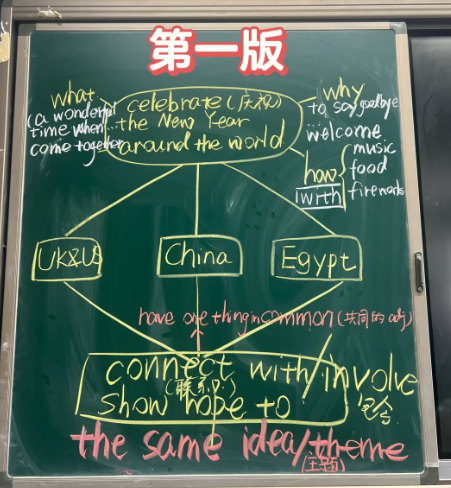 第一版
what
(a wonderful
time when...
come together
celebrate (庆祝)
the New Year
around the world
why
to say goodbye
welcome
how
with
music
food
fireworks
UK&US
China
Egypt
have one thing in common (共同的 adj)
connect with/involve
(联系) 包含
show hope to
the same idea/theme
(主题)